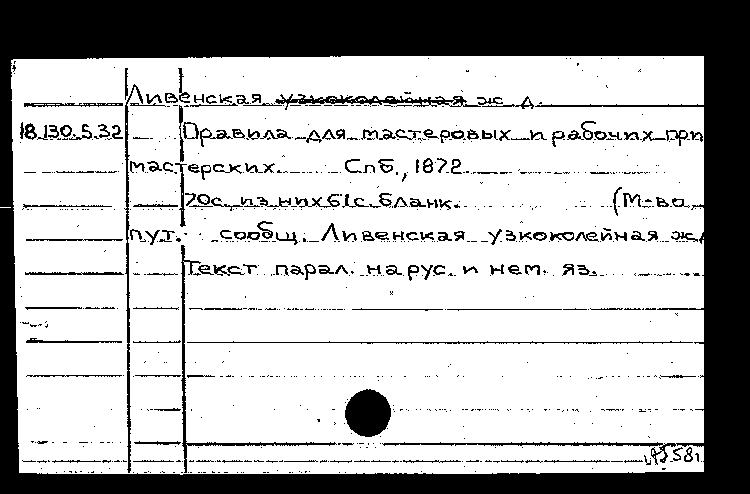 Ливенская узкоколейная ж д.
18.130.5.32 Правила для мастеровых и рабочих при
мастерских. Спб., 1872
70с. из них 61с. бланк. (М-во
пут. сообщ. Ливенская узкоколейная ж.
Текст парал. на рус. и нем. яз.